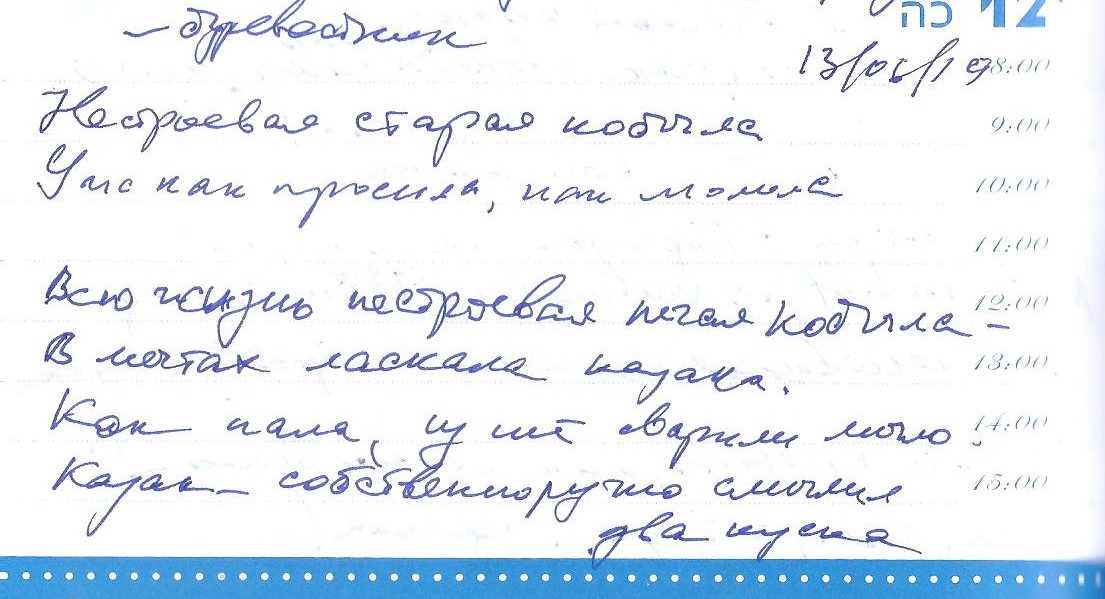 כה 12
– буревестник
13/06/19
8:00
Нестроевая старая кобыла
9:00
Уж как просила, как молила
10:00
11:00
Всю жизнь нестроевая пегая кобыла –
12:00
В мечтах ласкала казака.
13:00
Как пала, из неё сварили мыло.
14:00
Казак – собственноручно смылил
15:00
два куска